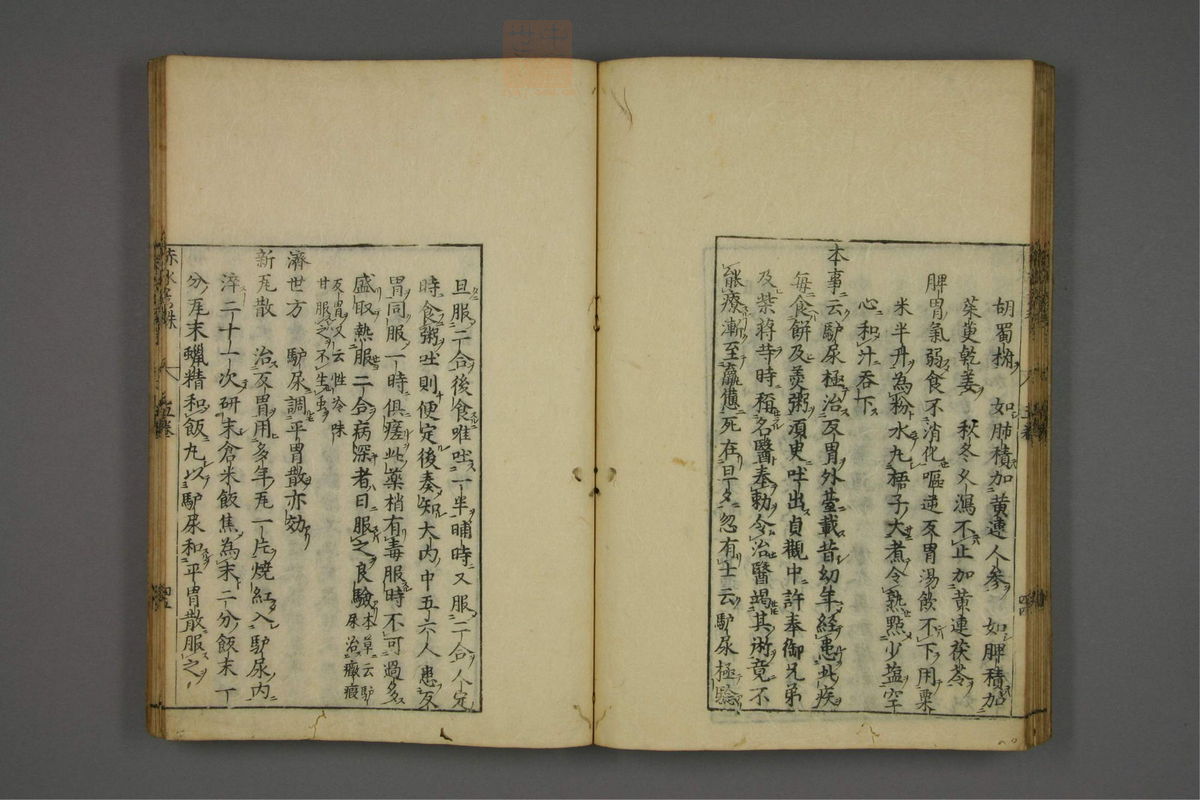 胡蜀椒 如肺積加黄連人參 如脾積加
茱萸乾姜 秋冬久瀉不止加黄連茯苓
脾胃氣弱食不消化嘔逆反胃湯飲不下用粟
米半升為粉水丸梧子大煮令熟點少塩空
心和汁吞下
本事云馿尿極治反胃外臺載昔幼年経患此疾
毎食餅及羮粥須臾吐出貞觀中許奉御兄弟
及柴蔣等時稱名醫奉勅令治醫竭其術竟不
能療漸至羸憊死在旦夕忽有一士云馿尿極驗
旦服二合後食唯吐一半晡時又服二合人定
時食粥吐則便定後奏知大内中五六人患反
胃同服一時俱瘥此藥稍有毒服時不可過多
盛取熱服二合病深者日服之良驗 本草云馿尿治癥瘕
反胃又云性冷味甘服之不生虫
濟世方 馿尿調平胃散亦効
新瓦散 治反胃用多年瓦一片燒紅入馿尿内
淬二十一次研末倉米飯焦為末二分飯末一
分瓦末蠟精和飯丸以馿尿和平胃散服之
赤水玄珠
五卷